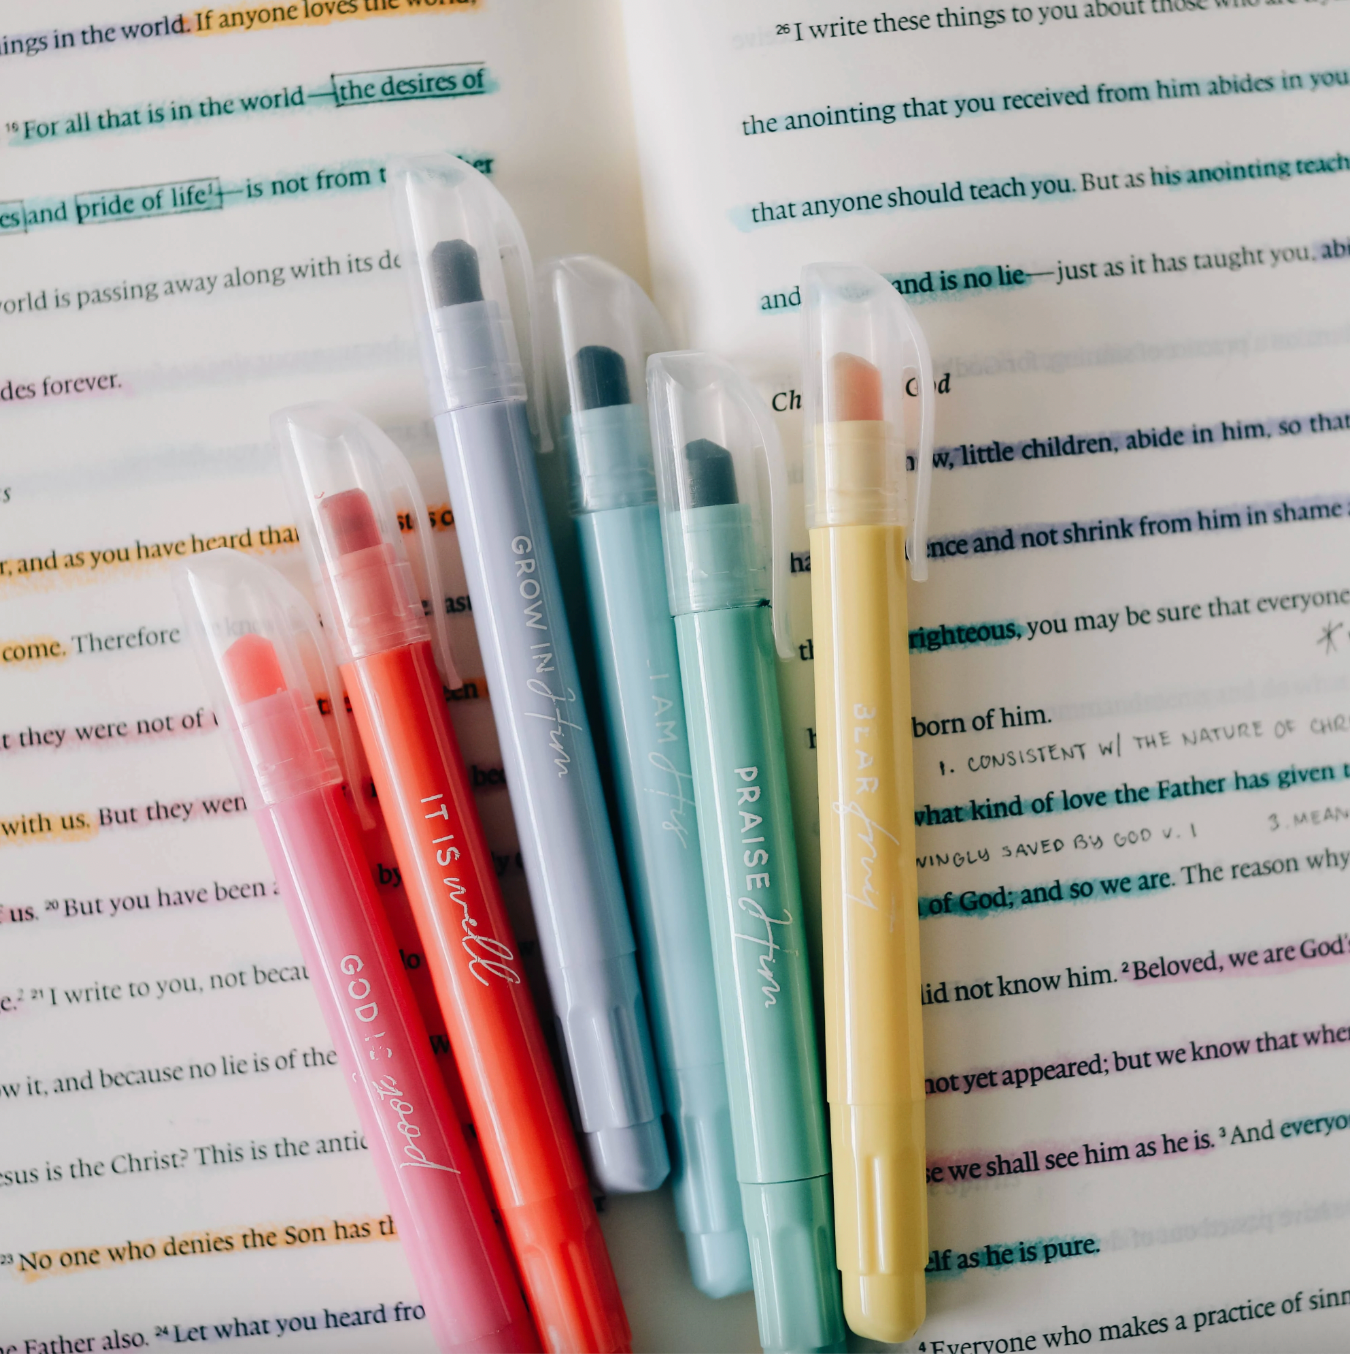 ings in the world. If anyone loves the world,
16 For all that is in the world—the desires of
es and pride of life1—is not from t
world is passing away along with its de
des forever.
s
r, and as you have heard that
come. Therefore
t they were not of
with us. But they wen
us. 20 But you have been
e.2 21 I write to you, not becau
w it, and because no lie is of the
esus is the Christ? This is the antic
23 No one who denies the Son has th
e Father also. 24 Let what you heard fro
GOD IS good
IT IS well
GROW IN Him
I AM His
PRAISE Him
BEAR fruit
26 I write these things to you about those who are
the anointing that you received from him abides in you
that anyone should teach you. But as his anointing teach
and and is no lie—just as it has taught you, abi
Ch God
ow, little children, abide in him, so that
ha ence and not shrink from him in shame
th righteous, you may be sure that everyone
born of him.
1. CONSISTENT W/ THE NATURE OF CHR
what kind of love the Father has given t
VINGLY SAVED BY GOD V. 1 3. MEAN
of God; and so we are. The reason why
did not know him. 2 Beloved, we are God's
not yet appeared; but we know that when
se we shall see him as he is. 3 And everyo
elf as he is pure.
4 Everyone who makes a practice of sinn